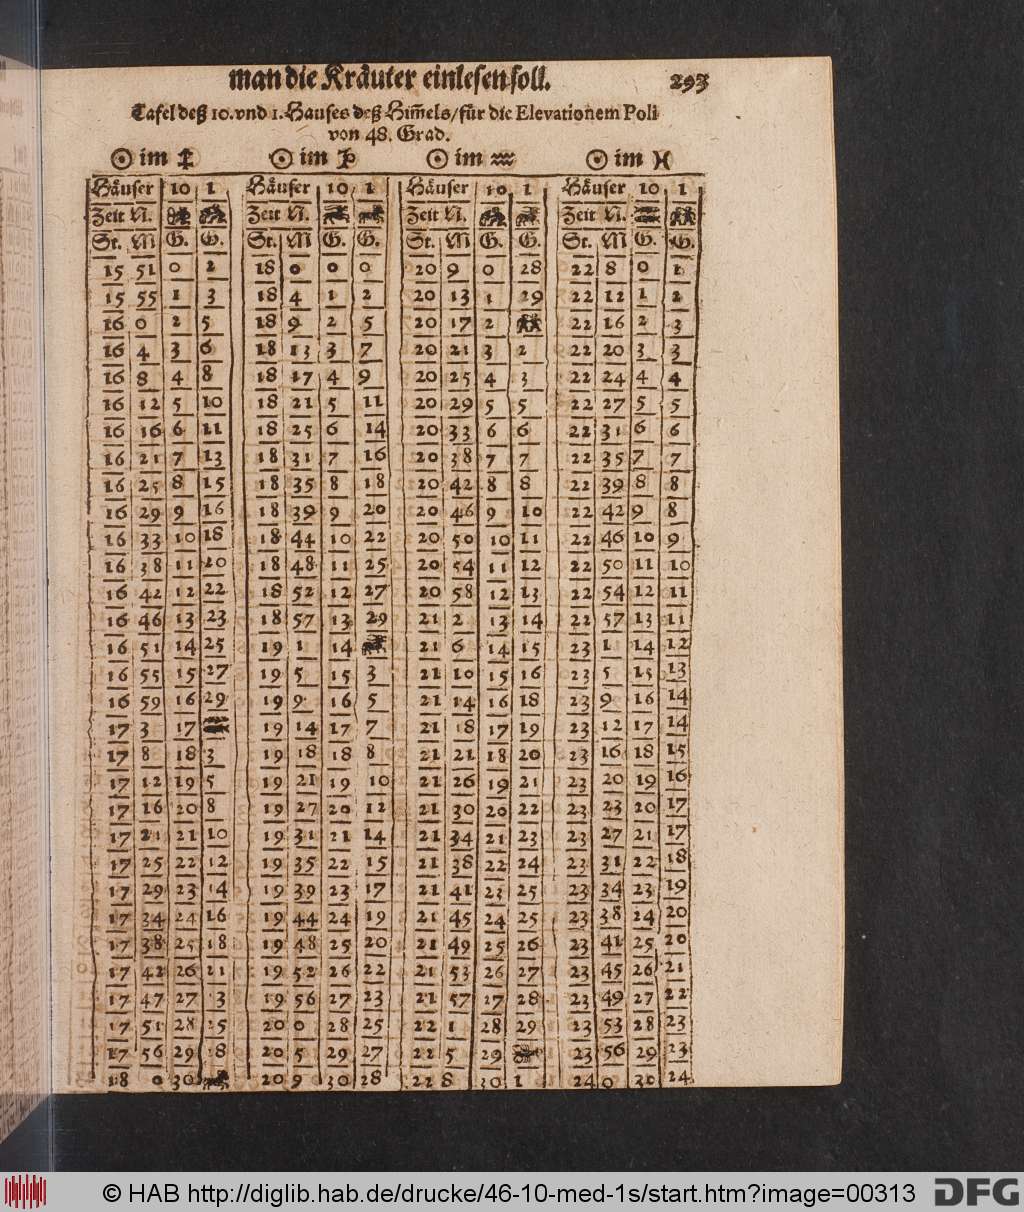 man die Kräuter einlesen soll. 293
Tafel deß 10. vnd 1. Hauses deß Him̃els/ für die Elevationem Poli
von 48. Grad.
☉ im ♐ ☉ im ♑ ☉ im ♒ ☉ im ♓
Häuser 10 1 Häuser 10 1 Häuser 10 1 Häuser 10 1
Zeit N. Zeit N. Zeit N. Zeit N.
St. M G. G. St. M G. G. St. M G. G. St. M G. G.
15 51 0 2 18 0 0 0 20 9 0 28 22 8 0 1
15 55 1 3 18 4 1 2 20 13 1 29 22 12 1 2
16 0 2 5 18 9 2 5 20 17 2 22 16 2 3
16 4 3 6 18 13 3 7 20 21 3 2 22 20 3 3
16 8 4 8 18 17 4 9 20 25 4 3 22 24 4 4
16 12 5 10 18 21 5 11 20 29 5 5 22 27 5 5
16 16 6 11 18 25 6 14 20 33 6 6 22 31 6 6
16 21 7 13 18 31 7 16 20 38 7 7 22 35 7 7
16 25 8 15 18 35 8 18 20 42 8 8 22 39 8 8
16 29 9 16 18 39 9 20 20 46 9 10 22 42 9 8
16 33 10 18 18 44 10 22 20 50 10 11 22 46 10 9
16 38 11 20 18 48 11 25 20 54 11 12 22 50 11 10
16 42 12 22 18 52 12 27 20 58 12 13 22 54 12 11
16 46 13 23 18 57 13 29 21 2 13 14 22 57 13 11
16 51 14 25 19 1 14 21 6 14 15 23 1 14 12
16 55 15 27 19 5 15 3 21 10 15 16 23 5 15 13
16 59 16 29 19 9 16 5 21 14 16 18 23 9 16 14
17 3 17 19 14 17 7 21 18 17 19 23 12 17 14
17 8 18 3 19 18 18 8 21 21 18 20 23 16 18 15
17 12 19 5 19 21 19 10 21 26 19 21 23 20 19 16
17 16 20 8 19 27 20 12 21 30 20 22 23 23 20 17
17 21 21 10 19 31 21 14 21 34 21 23 23 27 21 17
17 25 22 12 19 35 22 15 21 38 22 24 23 31 22 18
17 29 23 14 19 39 23 17 21 41 23 25 23 34 23 19
17 34 24 16 19 44 24 19 21 45 24 25 23 38 24 20
17 38 25 18 19 48 25 20 21 49 25 26 23 41 25 20
17 42 26 21 19 52 26 22 21 53 26 27 23 45 26 21
17 47 27 3 19 56 27 23 21 57 27 28 23 49 27 22
17 51 28 25 20 0 28 25 22 1 28 29 23 53 28 23
17 56 29 28 20 5 29 27 22 5 29 23 56 29 23
18 0 30 20 9 30 28 22 8 30 1 24 0 30 24
© HAB http://diglib.hab.de/drucke/46-10-med-1s/start.htm?image=00313 DFG